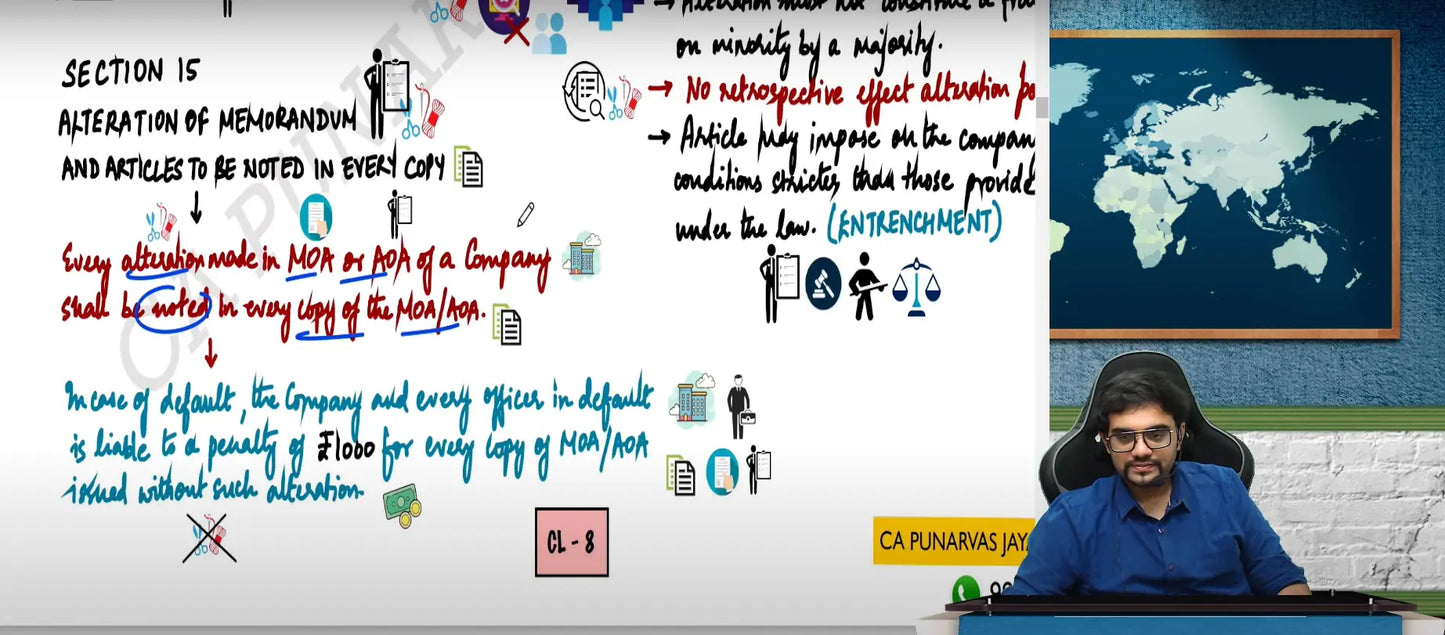 SECTION 15
ALTERATION OF MEMORANDUM
AND ARTICLES TO BE NOTED IN EVERY COPY
Every alteration made in MOA or AOA of a Company
shall be noted in every copy of the MOA/AOA.
In case of default, the Company and every officer in default
is liable to a penalty of ₹1000 for every copy of MOA/AOA
issued without such alteration
CL - 8
→ Alteration must not constitute a
on minority by a majority.
→ No retrospective effect alteration
→ Article may impose on the
conditions stricter than those
under the law. (ENTRENCHMENT)
CA PUNARVAS